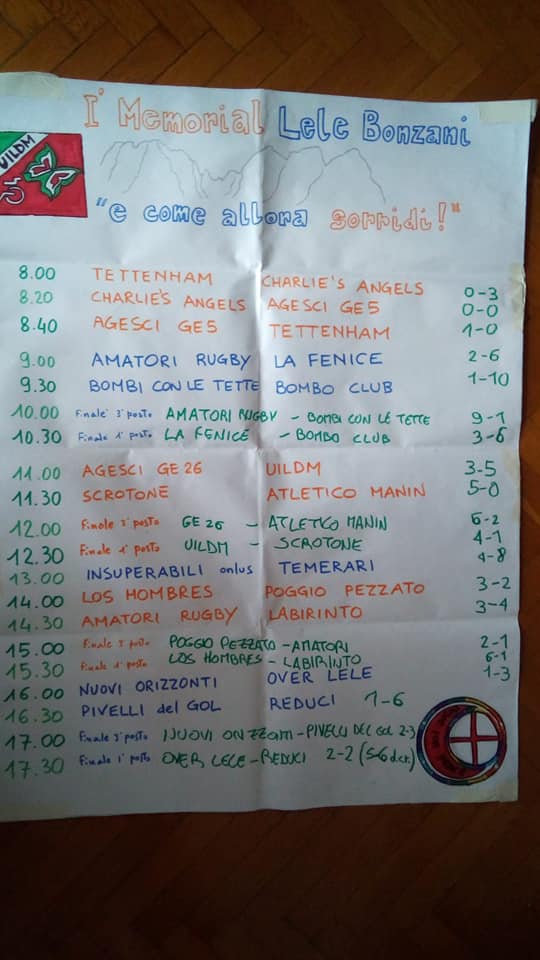 I° Memorial Lele Bonzani
UILDM
"e come allora sorridi!"
8.00 TETTENHAM CHARLIE'S ANGELS 0-3
8.20 CHARLIE'S ANGELS AGESCI GE5 0-0
8.40 AGESCI GE5 TETTENHAM 1-0
9.00 AMATORI RUGBY LA FENICE 2-6
9.30 BOMBI CON LE TETTE BOMBO CLUB 1-10
10.00 Finale 3° posto AMATORI RUGBY - BOMBI CON LE TETTE 9-1
10.30 Finale 1° posto LA FENICE - BOMBO CLUB 3-6
11.00 AGESCI GE 26 UILDM 3-5
11.30 SCROTONE ATLETICO MANIN 5-0
12.00 Finale 3° posto GE 26 - ATLETICO MANIN 6-2
12.30 Finale 1° posto UILDM - SCROTONE 4-1
13.00 INSUPERABILI onlus TEMERARI 4-8
14.00 LOS HOMBRES POGGIO PEZZATO 3-2
14.30 AMATORI RUGBY LABIRINTO 3-4
15.00 Finale 3° posto POGGIO PEZZATO - AMATORI 2-1
15.30 Finale 1° posto LOS HOMBRES - LABIRINTO 6-1
16.00 NUOVI ORIZZONTI OVER LELE 1-3
16.30 PIVELLI del GOL REDUCI 1-6
17.00 Finale 3° posto NUOVI - PIVELLI DEL GOL 2-3
17.30 Finale 1° posto OVER LELE - REDUCI 2-2 (5-6 d.c.r.)